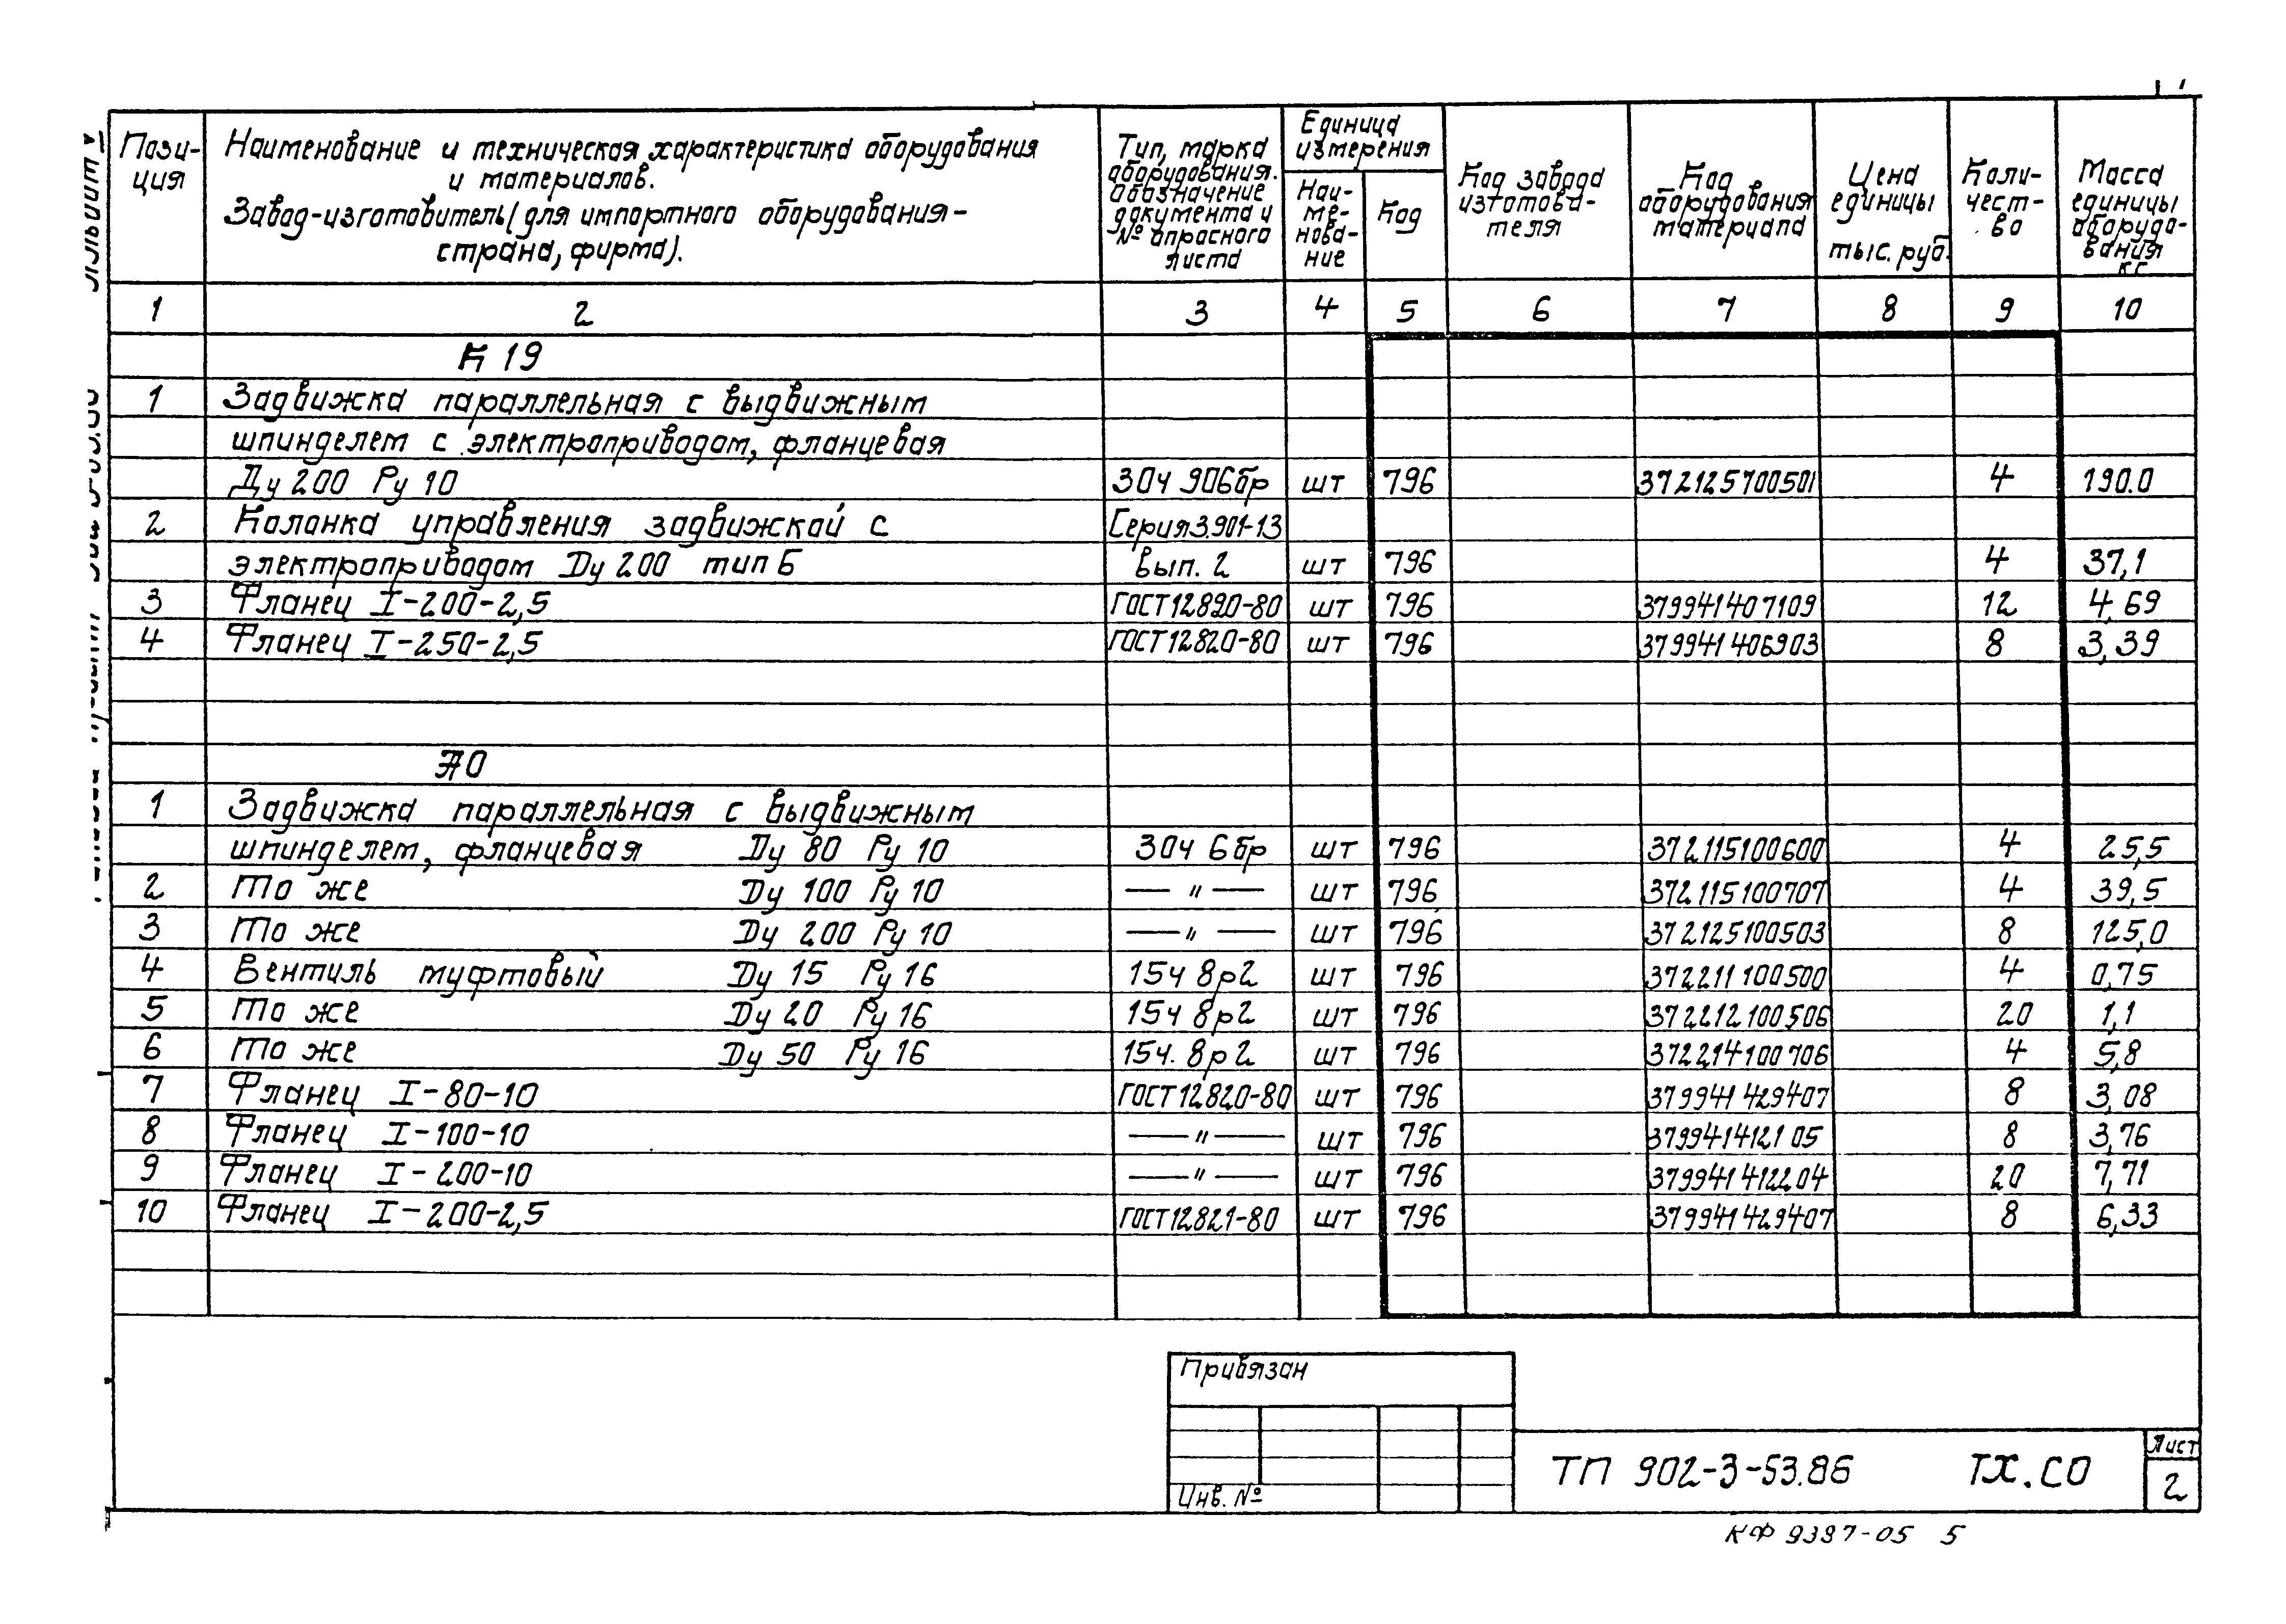 Пози-
ция
Наименование и техническая характеристика оборудования
и материалов.
Завод-изготовитель (для импортного оборудования-
страна, фирма).
Тип, марка
оборудования.
Обозначение
документа и
№ опросного
листа
Единица
измерения
Наи-
ме-
нова-
ние
Код
Код завода
изготови-
теля
Код
оборудования
материала
Цена
единицы
тыс. руб.
Коли-
чест-
во
Масса
единицы
оборудо-
вания
кг
1 2 3 4 5 6 7 8 9 10
К 19
1 Задвижка параллельная с выдвижным
шпинделем с электроприводом, фланцевая
Ду 200 Ру 10 30ч 906бр шт 796 372125700501 4 190.0
2 Колонка управления задвижкой с Серия 3.901-13
электроприводом Ду 200 тип Б Вып. 2 шт 796 4 37,1
3 Фланец I-200-2,5 ГОСТ 12820-80 шт 796 379941407109 12 4,69
4 Фланец I-250-2,5 ГОСТ 12820-80 шт 796 379941406903 8 3,39
ЛО
1 Задвижка параллельная с выдвижным
шпинделем, фланцевая Ду 80 Ру 10 30ч 6бр шт 796 372115100600 4 25,5
2 То же Ду 100 Ру 10 — " — шт 796 372115100707 4 39,5
3 То же Ду 200 Ру 10 — " — шт 796 372125100503 8 125,0
4 Вентиль муфтовый Ду 15 Ру 16 15ч 8р2 шт 796 372211100500 4 0,75
5 То же Ду 20 Ру 16 15ч 8р2 шт 796 372212100506 20 1,1
6 То же Ду 50 Ру 16 15ч. 8р2 шт 796 372214100706 4 5,8
7 Фланец I-80-10 ГОСТ 12820-80 шт 796 379941429407 8 3,08
8 Фланец I-100-10 — " — шт 796 379941412105 8 3,76
9 Фланец I-200-10 — " — шт 796 379941412204 20 7,71
10 Фланец I-200-2,5 ГОСТ 12821-80 шт 796 379941429407 8 6,33
Привязан
Инв. №
ТП 902-3-53.86 ТХ.СО
Лист
2
КФ 9397-05 5